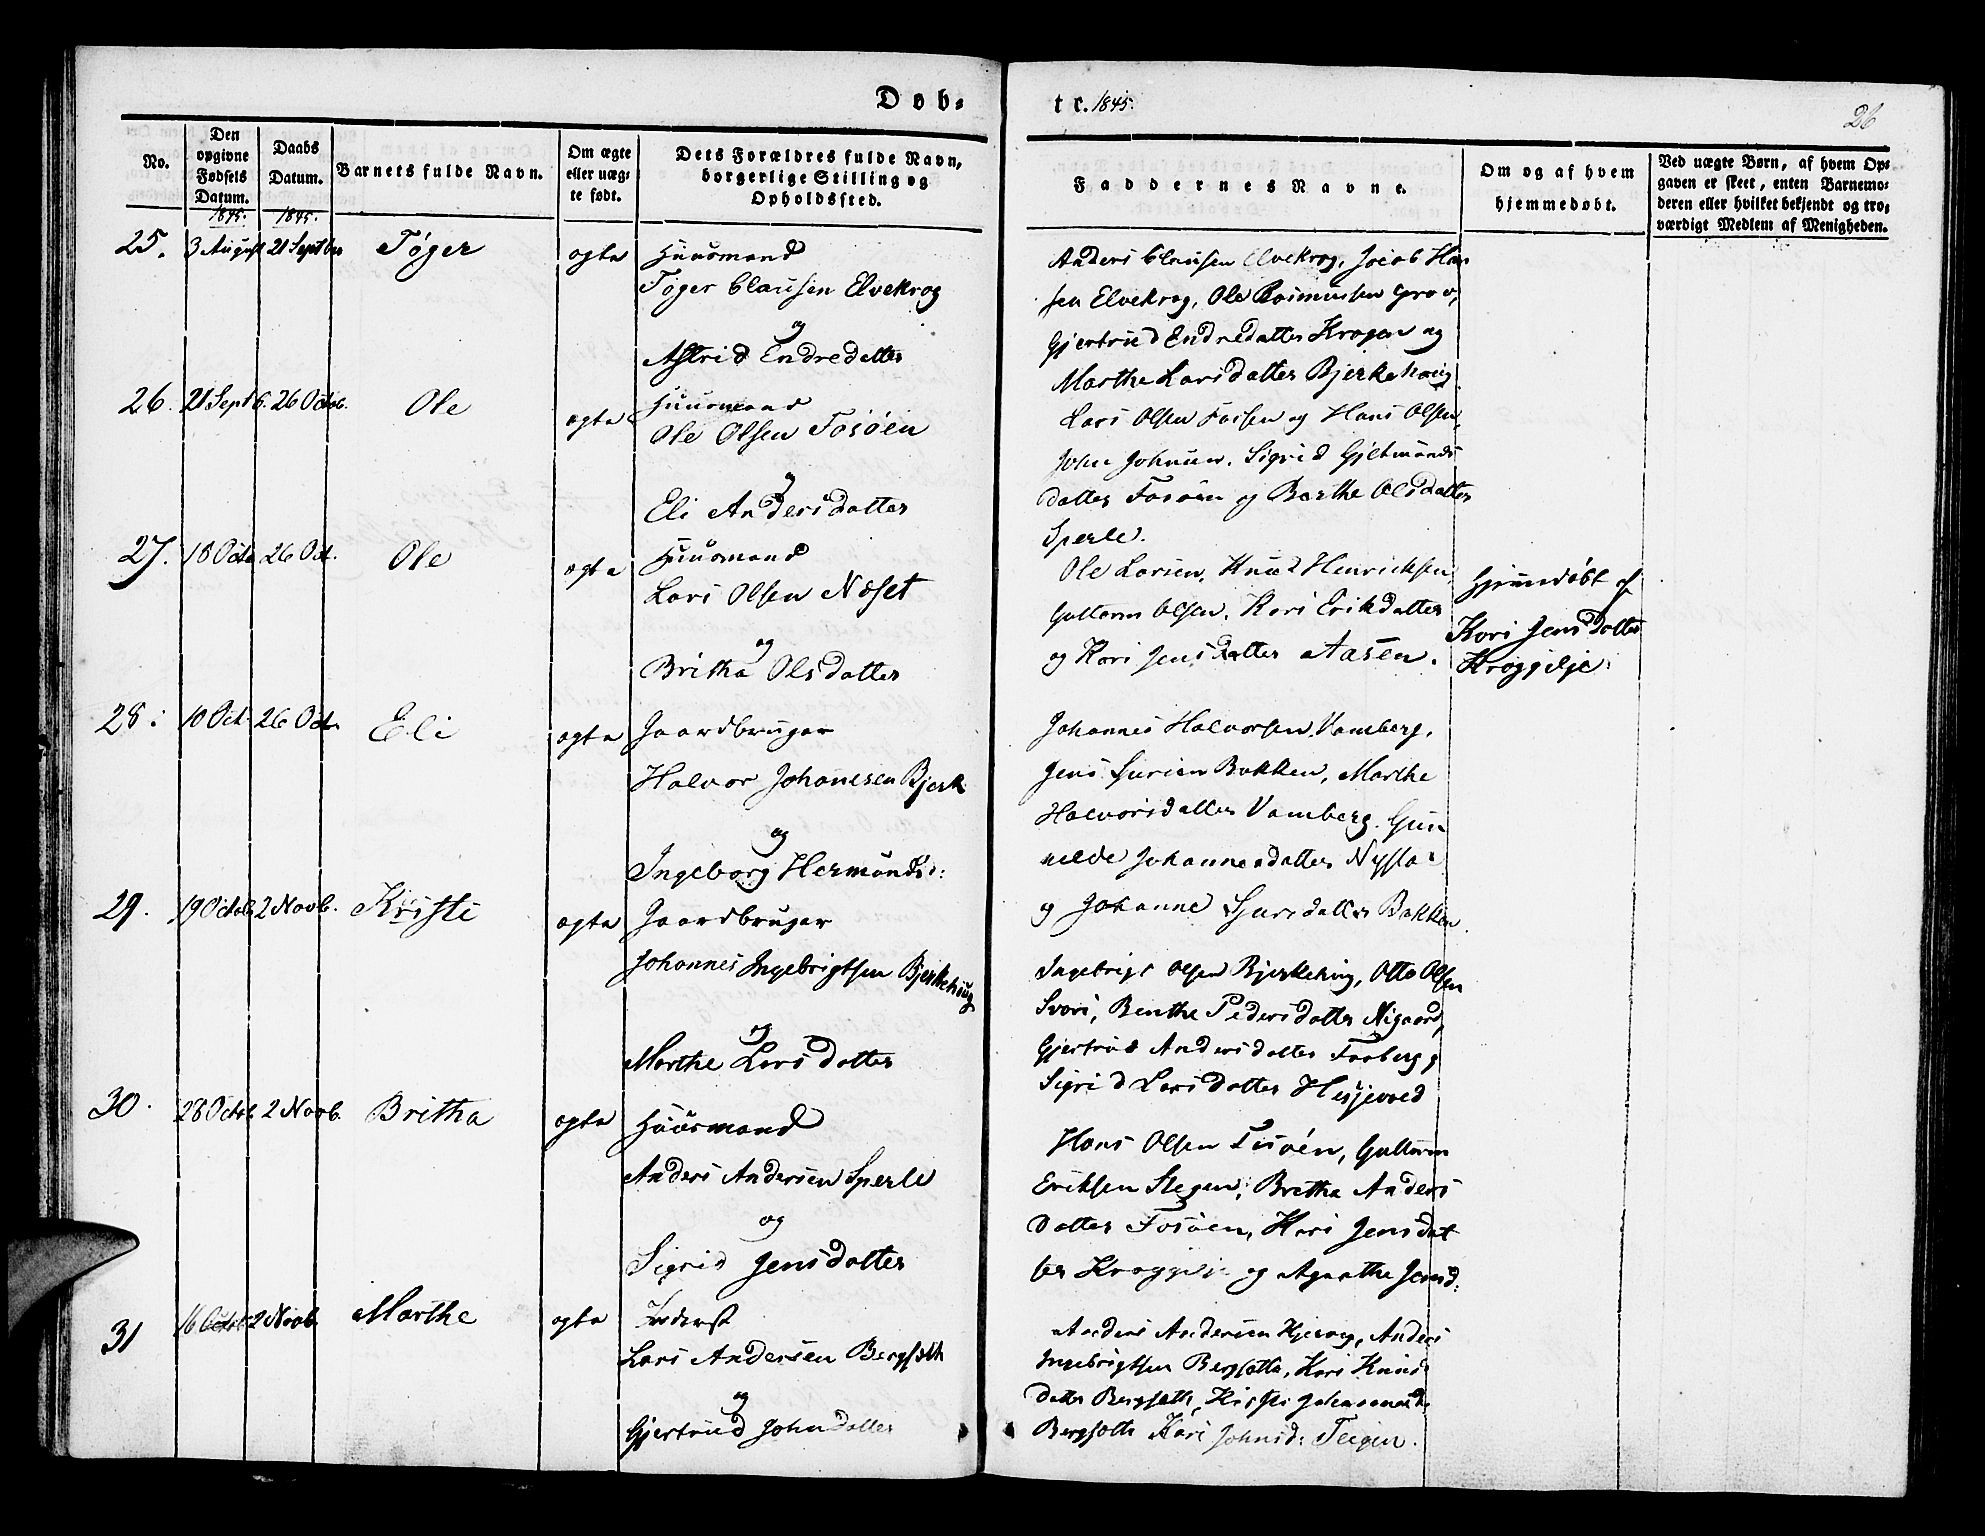 Døb-
te. 1845.
26
No.
Den opgivne Fødsels Datum.
Daabs Datum.
Barnets fulde Navn.
Om ægte eller uægte født.
Dets Forældres fulde Navn, borgerlige Stilling og Opholdssted.
Faddernes Navne.
Om og af hvem hjemmedøbt.
Ved uægte Børn, af hvem Opgaven er skeet, enten Barnemoderen eller hvilket bekjendt og troværdigt Medlem af Menigheden.
1845. 1845.
25. 3 August 21 Septber Tøger ægte Huusmand
Tøger Clausen Elvekrog
og
Astrid Endredatter
Anders Clausen Elvekrog, Jacob Han
sen Elvekrog, Ole Rasmussen Grov,
Gjertrud Endredatter Krogen og
Marthe Larsdatter Bjerkehaug
26. 21 Septb. 26 Octob. Ole ægte Huusmand
Ole Olsen Fosøen
og
Eli Andersdatter
Lars Olsen og Hans Olsen,
John Johnsen, Sigrid Gjetmunds
datter Fosøen og Berthe Olsdatter
Sperle.
27. 18 Octo 26 Oct. Ole ægte Huusmand
Lars Olsen Næset
og
Britha Olsdatter
Ole Larsen, Knud Henricksen,
Guttorm Olsen, Kari Erikdatter
og Kari Jensdatter Aasen.
Hjemdøbt af
Kari Jensdatter
Kroggilje
28. 10 Oct. 26 Oct. Eli ægte Gaardbruger
Halvor Johannesen Bjerk
og
Ingeborg Hermunds:
Johannes Halvorsen Vamberg,
Jens Sjursen Bakken, Marthe
Halvorsdatter Vamberg. Gun
nilde Johannesdatter Nysta
og Johanne Sjursdatter Bakken.
29. 19 Octob 2 Novb. Kristi ægte Gaardbruger
Johannes Ingebrigtsen Bjerkehaug
og
Marthe Larsdatter
Ingebrigt Olsen Bjerkehaug, Otto Olsen
Svori, Benthe Pedersdatter Nigaard,
Gjertrud Andersdatter Faaberg,
Sigrid Larsdatter Hesjevoed
30. 28 Octob. 2 Novb. Britha ægte Huusmand
Anders Andersen Sperle
og
Sigrid Jensdatter
Hans Olsen Fosøen, Guttorm
Eriksen Stegen, Britha Anders
datter Fosøen, Kari Jensdat
ter Kroggilje og Agathe Jensd:
31 16 Octob. 2 Novb. Marthe ægte Inderst
Lars Andersen Bergsæth
og
Gjertrud Johndatter
Anders Andersen, Anders
Ingebrigtsen Bergsætte, Kari Knuds
datter Bergsæth, Kristi Johannesd.
Bergsæth Kari Johnsd: Teigen.